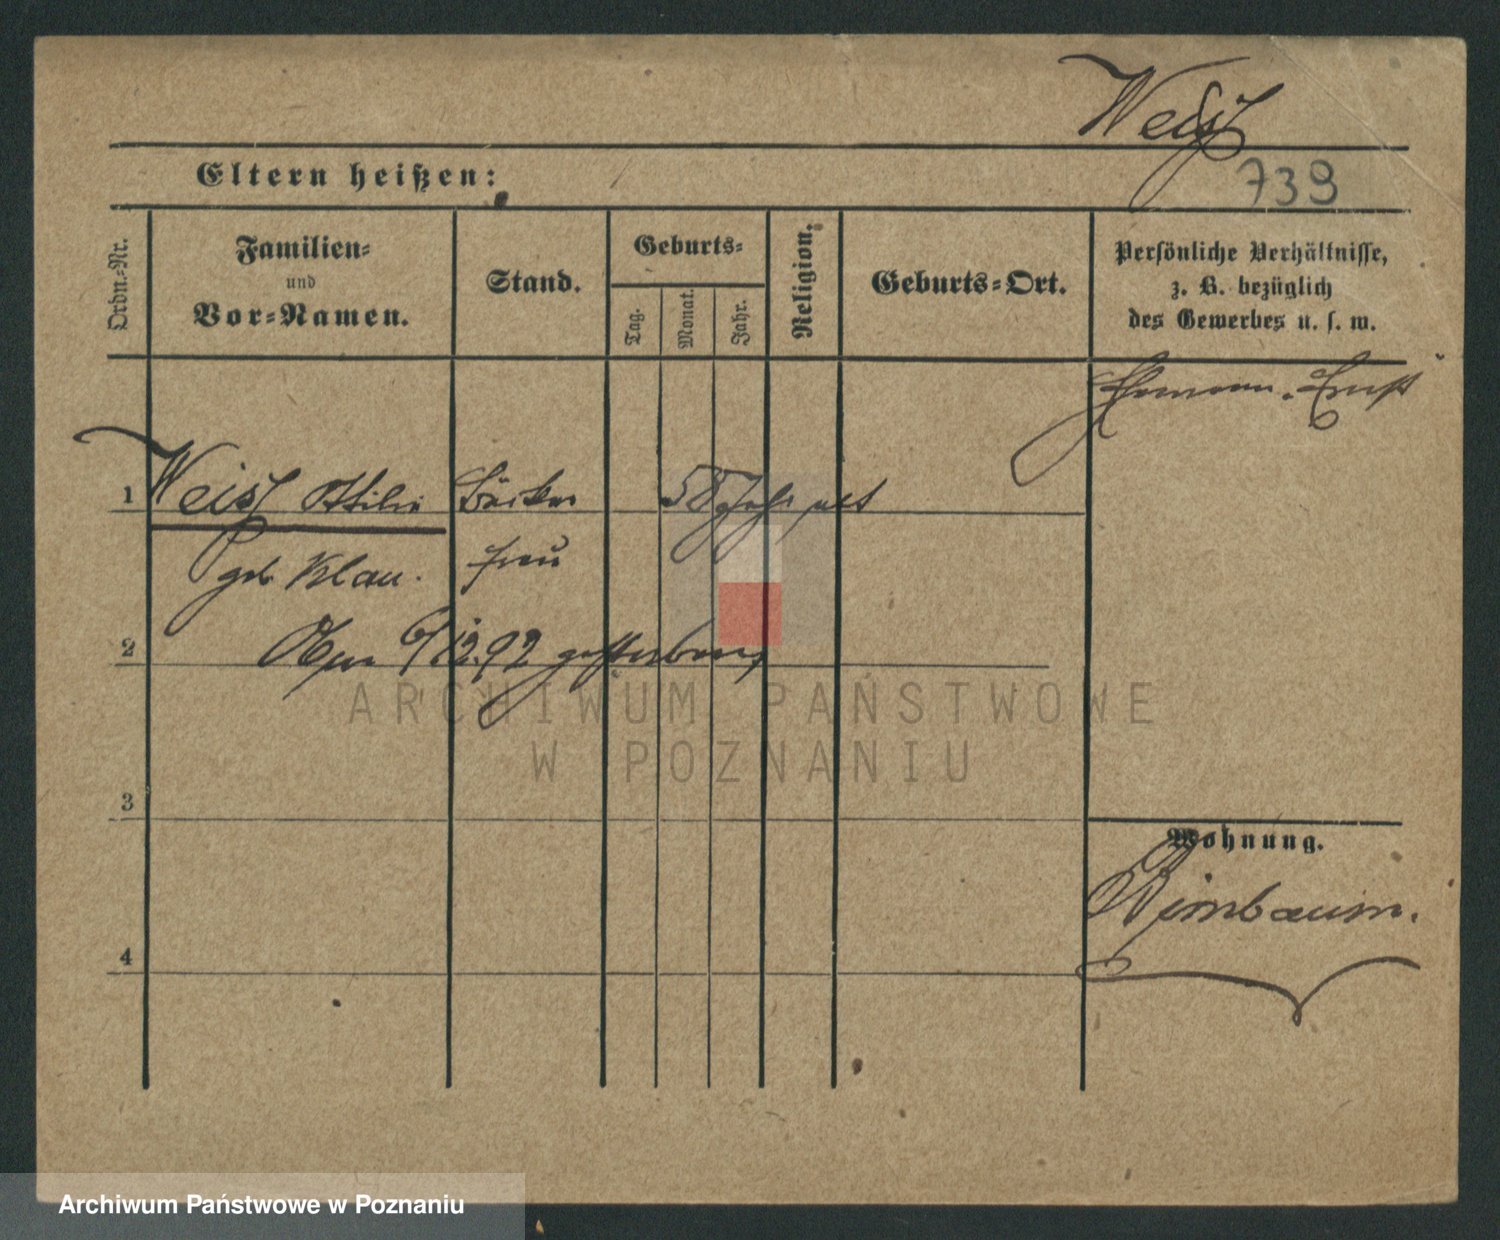 Weiß
Eltern heißen:
739
Ordn.-Nr.
Familien-
und
Vor-Namen.
Stand.
Geburts-
Tag.
Monat.
Jahr.
Religion.
Geburts-Ort.
Persönliche Verhältnisse,
z. B. bezüglich
des Gewerbes u. s. w.
Ehemann. Ernst
1 Weiß Ottilie Bäcker 58 Jahr alt
geb. Klau. frau
2 Am 6/12.92 gestorben
ARCHIWUM PAŃSTWOWE
W POZNANIU
3
Wohnung.
Birnbaum.
4
Archiwum Państwowe w Poznaniu